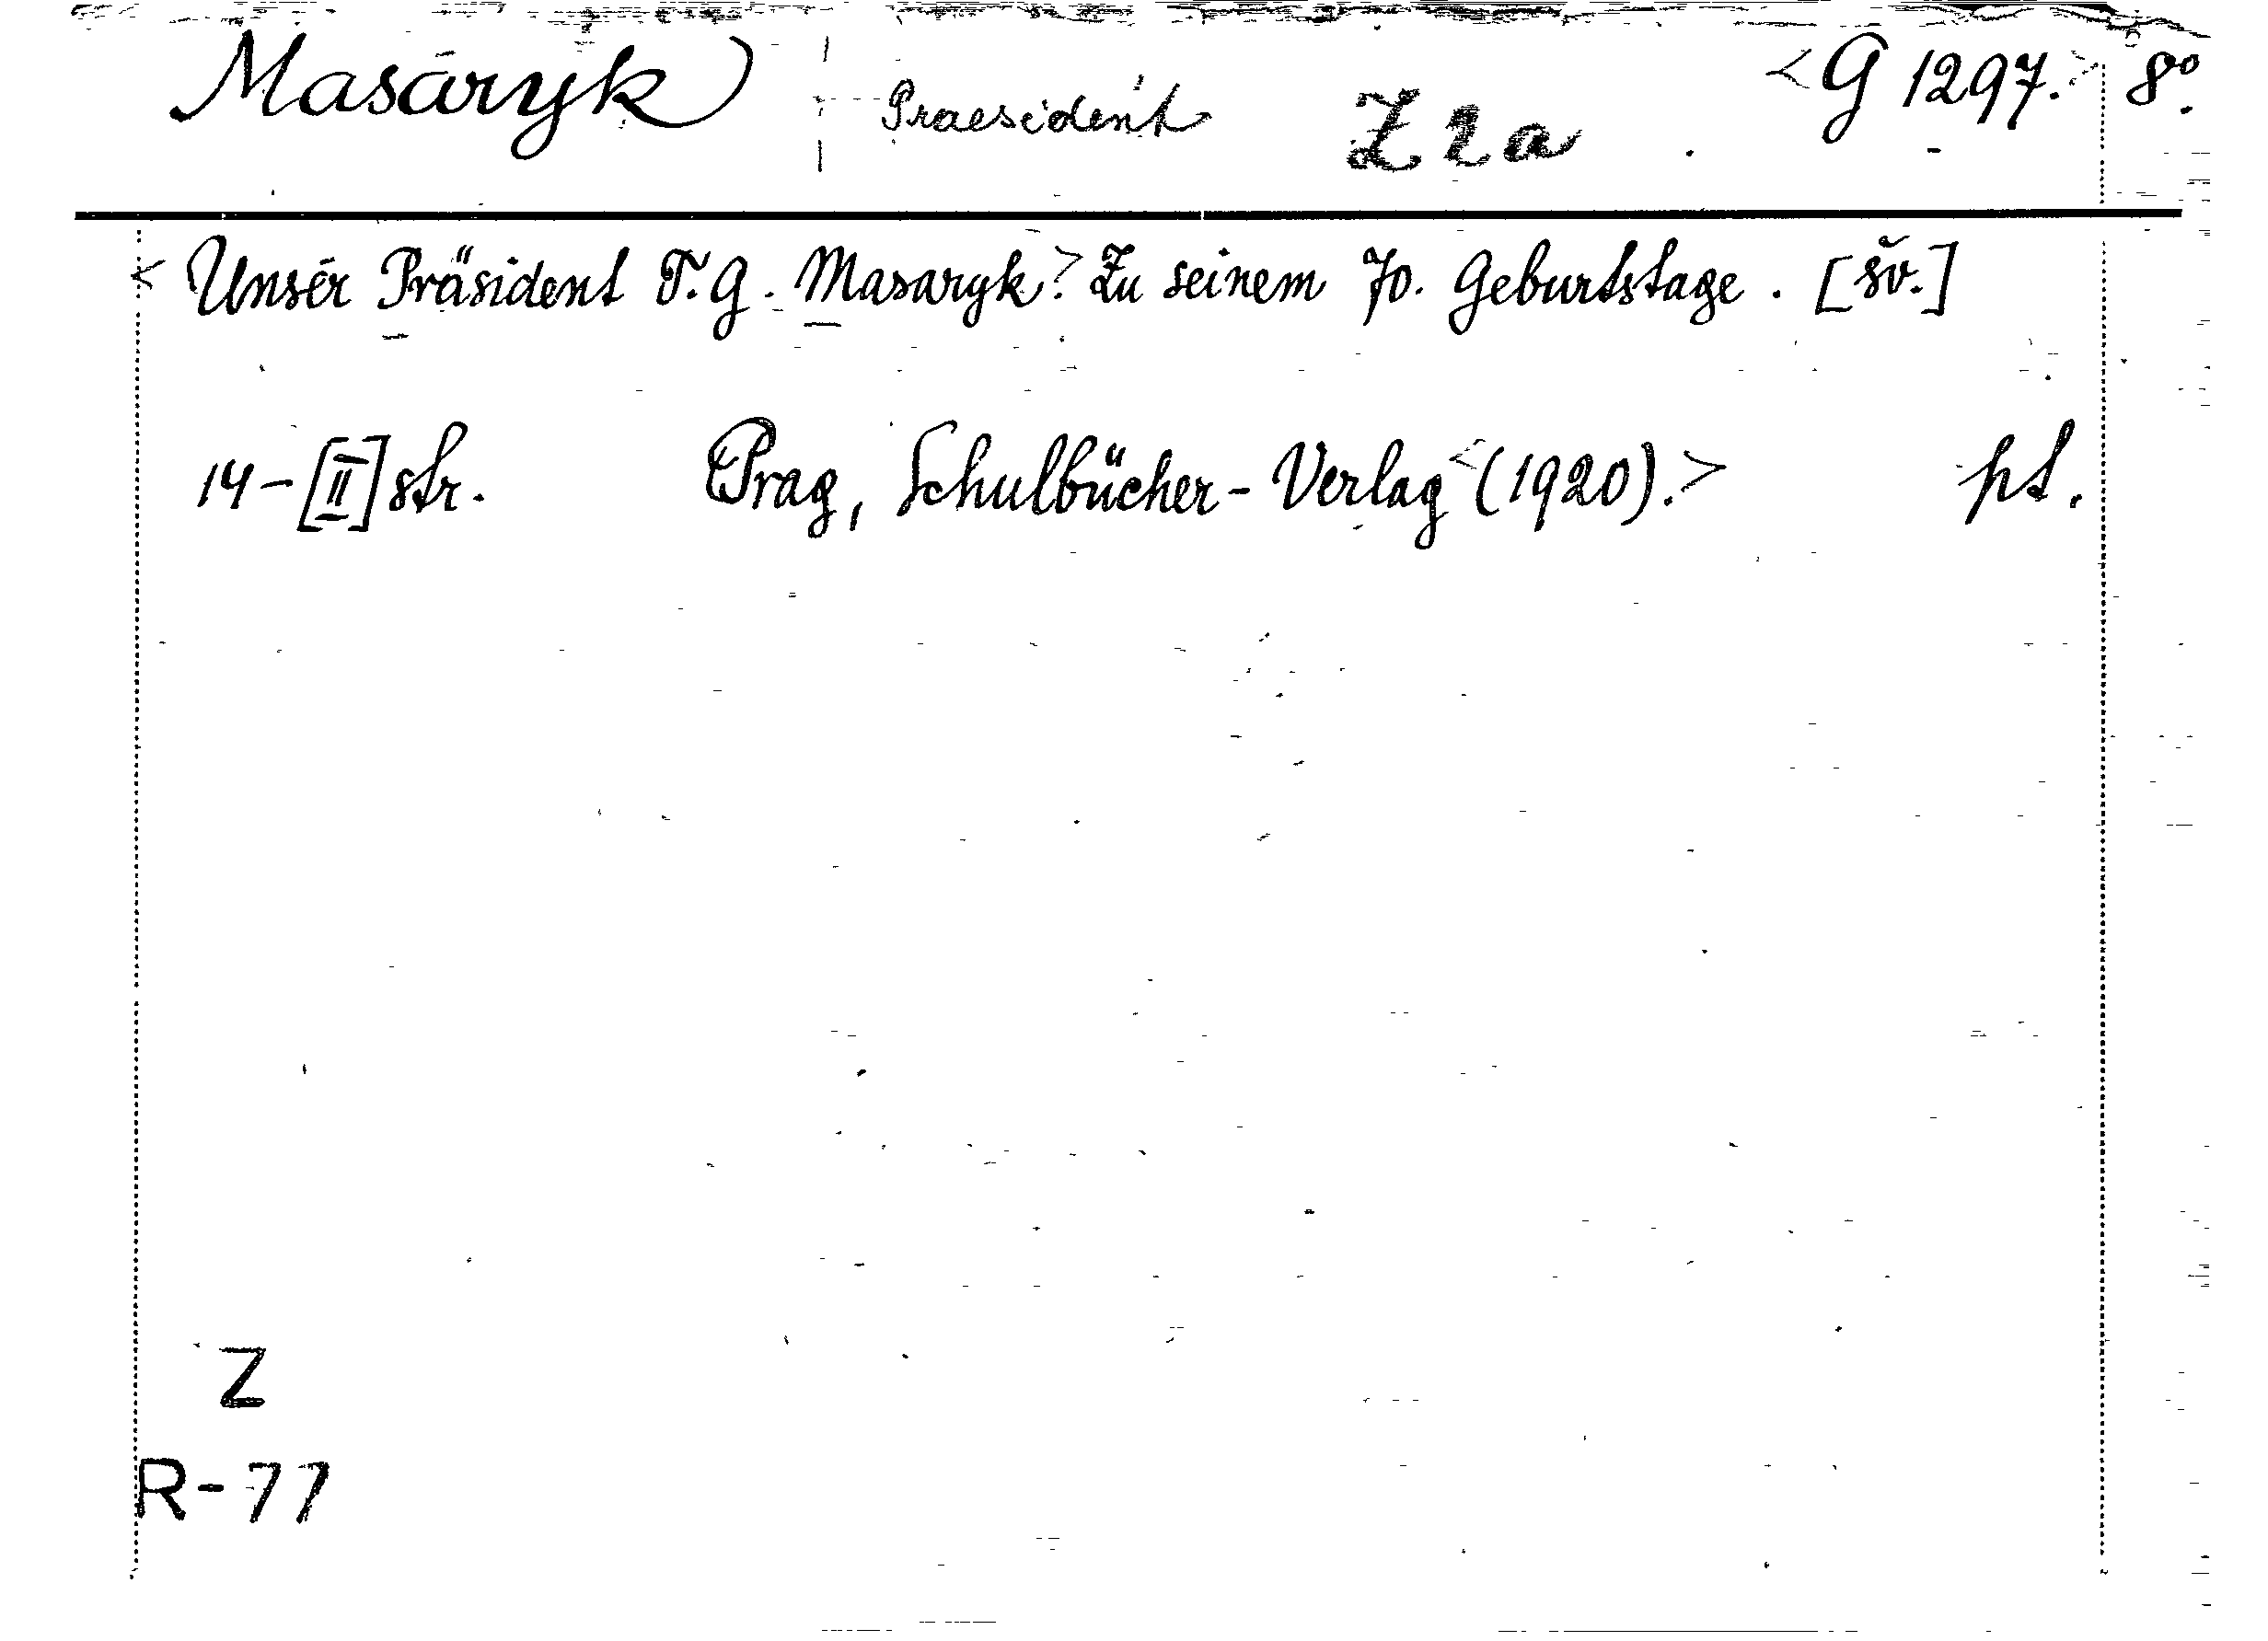 Masaryk Praesident Z 2a <G 1297.> 8°.
<Unser Präsident T. G. Masaryk.> Zu seinem 70. Geburtstage. [šv.]
14-[II] str. Prag, Schulbücher-Verlag <(1920).> pt.
Z
R-77